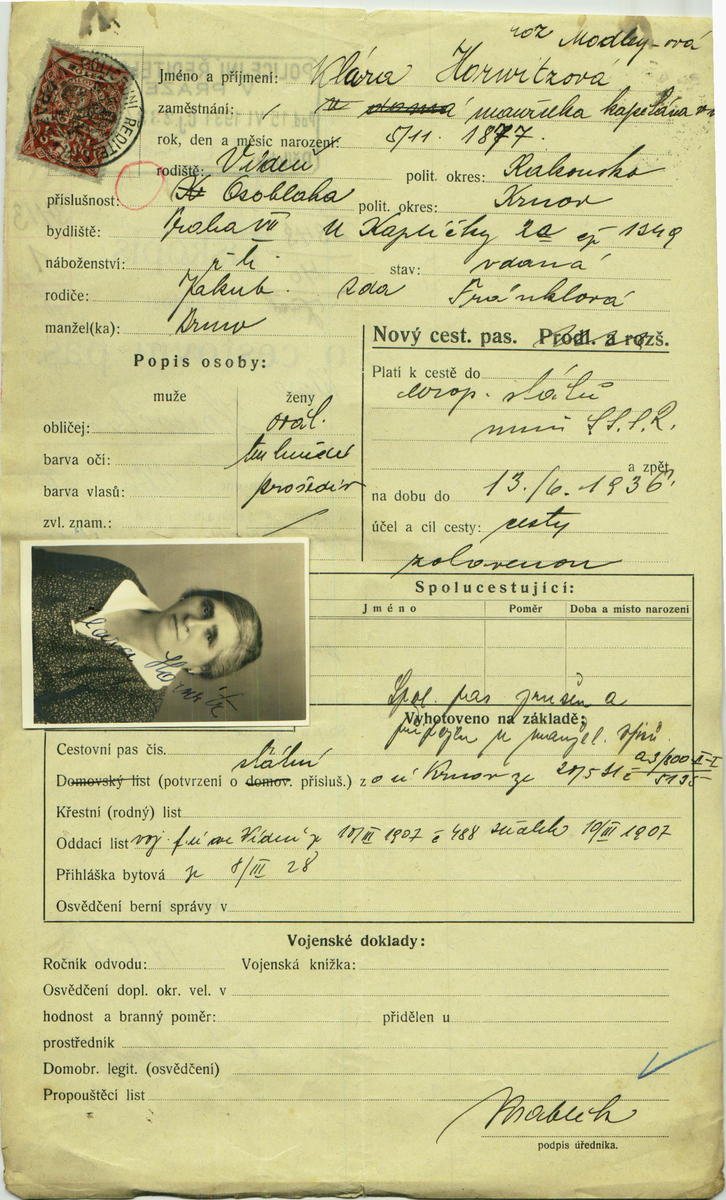 roz Modley-ová
Jméno a příjmení: Klára Horwitzová
zaměstnání: manželka
rok, den a měsíc narození: 5/11. 1877.
rodiště: Vídeň polit. okres: Rakousko
příslušnost: Osoblaha polit. okres: Krnov
bydliště: Praha VII U Kapličky 2a čp 1349
náboženství: stav: vdaná
rodiče: Jakub. Ida Fränklová
manžel(ka): Bruno
Nový cest. pas. Prodl. a rozš.
Popis osoby:
Platí k cestě do evrop. států
mimo S.S.S.R.
muže ženy
obličej: ovál.
barva očí: tm hnědé
a zpět,
barva vlasů: prošedivělé
na dobu do 13./6. 1936
zvl. znam.:
účel a cíl cesty: cesty
Spolucestující:
Jméno Poměr Doba a místo narození
Klara Horwitz
Spol. pas zrušen a
Vyhotoveno na základě:
připojen u manžel. spisů
Cestovní pas čís. státní
Domovský list (potvrzení o domov. přísluš.) z o ú Krnov ze 20/5 31 č
Křestní (rodný) list
Oddací list voj. f. ú ve Vídni z 10/III 1907 č 488 10/III 1907
Přihláška bytová z 8/III 28
Osvědčení berní správy v
Vojenské doklady:
Ročník odvodu: Vojenská knížka:
Osvědčení dopl. okr. vel. v
hodnost a branný poměr: přidělen u
prostředník
Domobr. legit. (osvědčení)
Propouštěcí list
podpis úředníka.